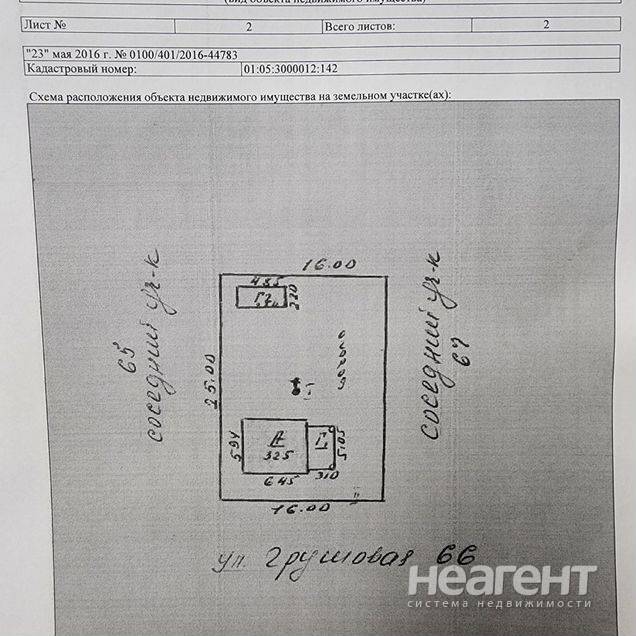 (вид объекта недвижимого имущества)
Лист № 2 Всего листов: 2
"23" мая 2016 г. № 0100/401/2016-44783
Кадастровый номер: 01:05:3000012:142
Схема расположения объекта недвижимого имущества на земельном участке(ах):
16.00
485
Г2
220
65
соседний уч-к
соседний уч-к
67
25.00
огород
I
А
325
Г1
594
5.05
645
310
II
16.00
ул. Грушовая 66
неагент
система недвижимости